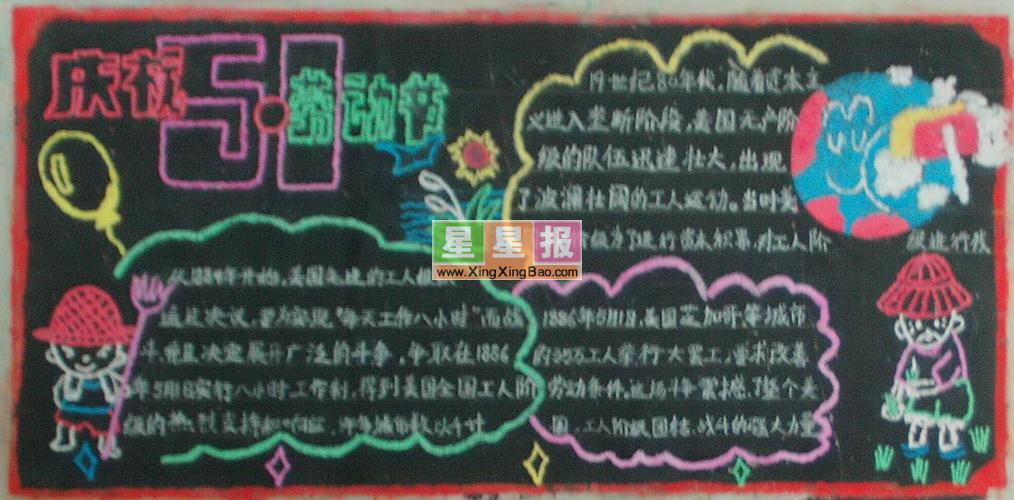 庆祝5·1劳动节
19世纪80年代,随着资本主
义进入垄断阶段,美国无产阶
级的队伍迅速壮大,出现
了波澜壮阔的工人运动。当时美
阶级为了进行资本积累,对工人阶 级进行残
星星报
www.XingXingBao.com
从1884年开始,美国先进的工人组
通过决议,要为实现"每天工作八小时"而战
斗,并且决定展开广泛的斗争,争取在1886
年5月1日实行八小时工作制,得到美国全国工人阶
级的热烈支持和响应,许多城市数以千计
1886年5月1日,美国芝加哥等城市
的35万工人举行大罢工,要求改善
劳动条件。这场斗争震撼了整个美
国,工人阶级团结战斗的强大力量